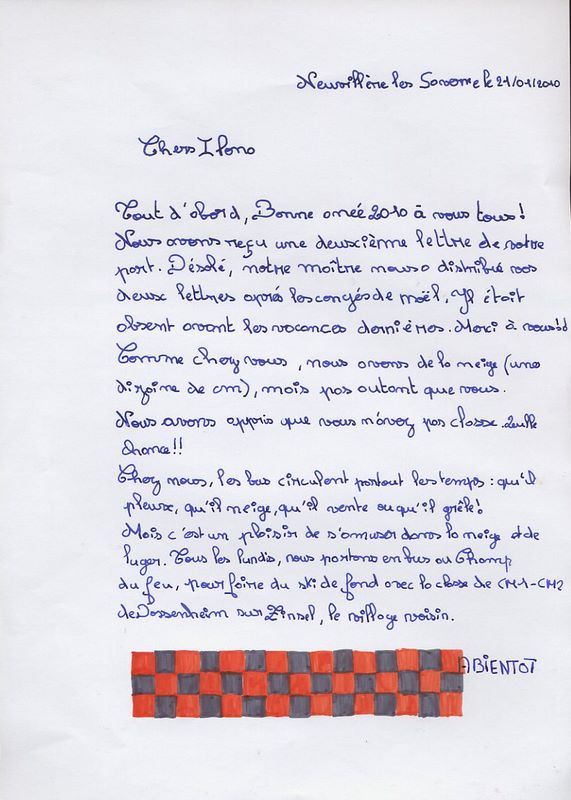 Neuvillère les Saverne le 21/01/2010
Chers Ilona
Tout d'abord, Bonne année 2010 à vous tous!
Nous avons reçu une deuxième lettre de votre
part. Désolé, notre maître nous a distribué vos
deux lettres après les congés de noël, Il était
absent avant les vacances dernières. Merci à vous!!
Comme chez vous, nous avons de la neige (une
dizaine de cm), mais pas autant que vous.
Nous avons appris que vous n'avez pas classe. Quelle
chance!!
Chez nous, les bus circulent partout les temps: qu'il
pleuve, qu'il neige, qu'il vente ou qu'il grêle!
Mais c'est un plaisir de s'amuser dans la neige et de
luger. Tous les lundis, nous partons en bus au Champ
du feu, pour faire du ski de fond avec la classe de CM1-CM2
de Dossenheim sur Zinsel, le village voisin.
A BIENTOT